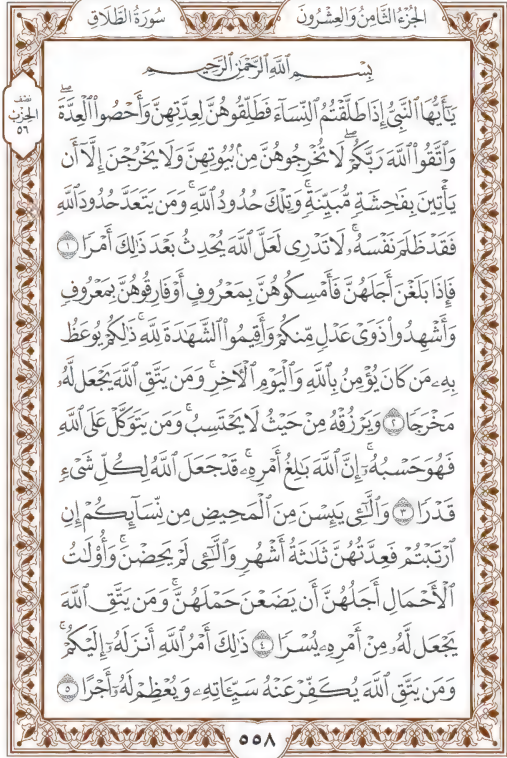 سُورَةُ الطَّلَاقِ
الجُزْءُ الثَّامِنُ وَالعِشْرُونَ
نصف
الحزب
٥٦
بِسْمِ ٱللَّهِ ٱلرَّحْمَٰنِ ٱلرَّحِيمِ
يَٰٓأَيُّهَا ٱلنَّبِيُّ إِذَا طَلَّقْتُمُ ٱلنِّسَآءَ فَطَلِّقُوهُنَّ لِعِدَّتِهِنَّ وَأَحْصُوا۟ ٱلْعِدَّةَۖ
وَٱتَّقُوا۟ ٱللَّهَ رَبَّكُمْۖ لَا تُخْرِجُوهُنَّ مِنۢ بُيُوتِهِنَّ وَلَا يَخْرُجْنَ إِلَّآ أَن
يَأْتِينَ بِفَٰحِشَةٍ مُّبَيِّنَةٍۚ وَتِلْكَ حُدُودُ ٱللَّهِۚ وَمَن يَتَعَدَّ حُدُودَ ٱللَّهِ
فَقَدْ ظَلَمَ نَفْسَهُۥۚ لَا تَدْرِى لَعَلَّ ٱللَّهَ يُحْدِثُ بَعْدَ ذَٰلِكَ أَمْرًا ١
فَإِذَا بَلَغْنَ أَجَلَهُنَّ فَأَمْسِكُوهُنَّ بِمَعْرُوفٍ أَوْ فَارِقُوهُنَّ بِمَعْرُوفٍ
وَأَشْهِدُوا۟ ذَوَىْ عَدْلٍ مِّنكُمْ وَأَقِيمُوا۟ ٱلشَّهَٰدَةَ لِلَّهِۚ ذَٰلِكُمْ يُوعَظُ
بِهِۦ مَن كَانَ يُؤْمِنُ بِٱللَّهِ وَٱلْيَوْمِ ٱلْءَاخِرِۚ وَمَن يَتَّقِ ٱللَّهَ يَجْعَل لَّهُۥ
مَخْرَجًا ٢ وَيَرْزُقْهُ مِنْ حَيْثُ لَا يَحْتَسِبُۚ وَمَن يَتَوَكَّلْ عَلَى ٱللَّهِ
فَهُوَ حَسْبُهُۥٓۚ إِنَّ ٱللَّهَ بَٰلِغُ أَمْرِهِۦۚ قَدْ جَعَلَ ٱللَّهُ لِكُلِّ شَىْءٍ
قَدْرًا ٣ وَٱلَّٰٓـِٔى يَئِسْنَ مِنَ ٱلْمَحِيضِ مِن نِّسَآئِكُمْ إِنِ
ٱرْتَبْتُمْ فَعِدَّتُهُنَّ ثَلَٰثَةُ أَشْهُرٍ وَٱلَّٰٓـِٔى لَمْ يَحِضْنَۚ وَأُو۟لَٰتُ
ٱلْأَحْمَالِ أَجَلُهُنَّ أَن يَضَعْنَ حَمْلَهُنَّۚ وَمَن يَتَّقِ ٱللَّهَ
يَجْعَل لَّهُۥ مِنْ أَمْرِهِۦ يُسْرًا ٤ ذَٰلِكَ أَمْرُ ٱللَّهِ أَنزَلَهُۥٓ إِلَيْكُمْۚ
وَمَن يَتَّقِ ٱللَّهَ يُكَفِّرْ عَنْهُ سَيِّـَٔاتِهِۦ وَيُعْظِمْ لَهُۥٓ أَجْرًا ٥
٥٥٨